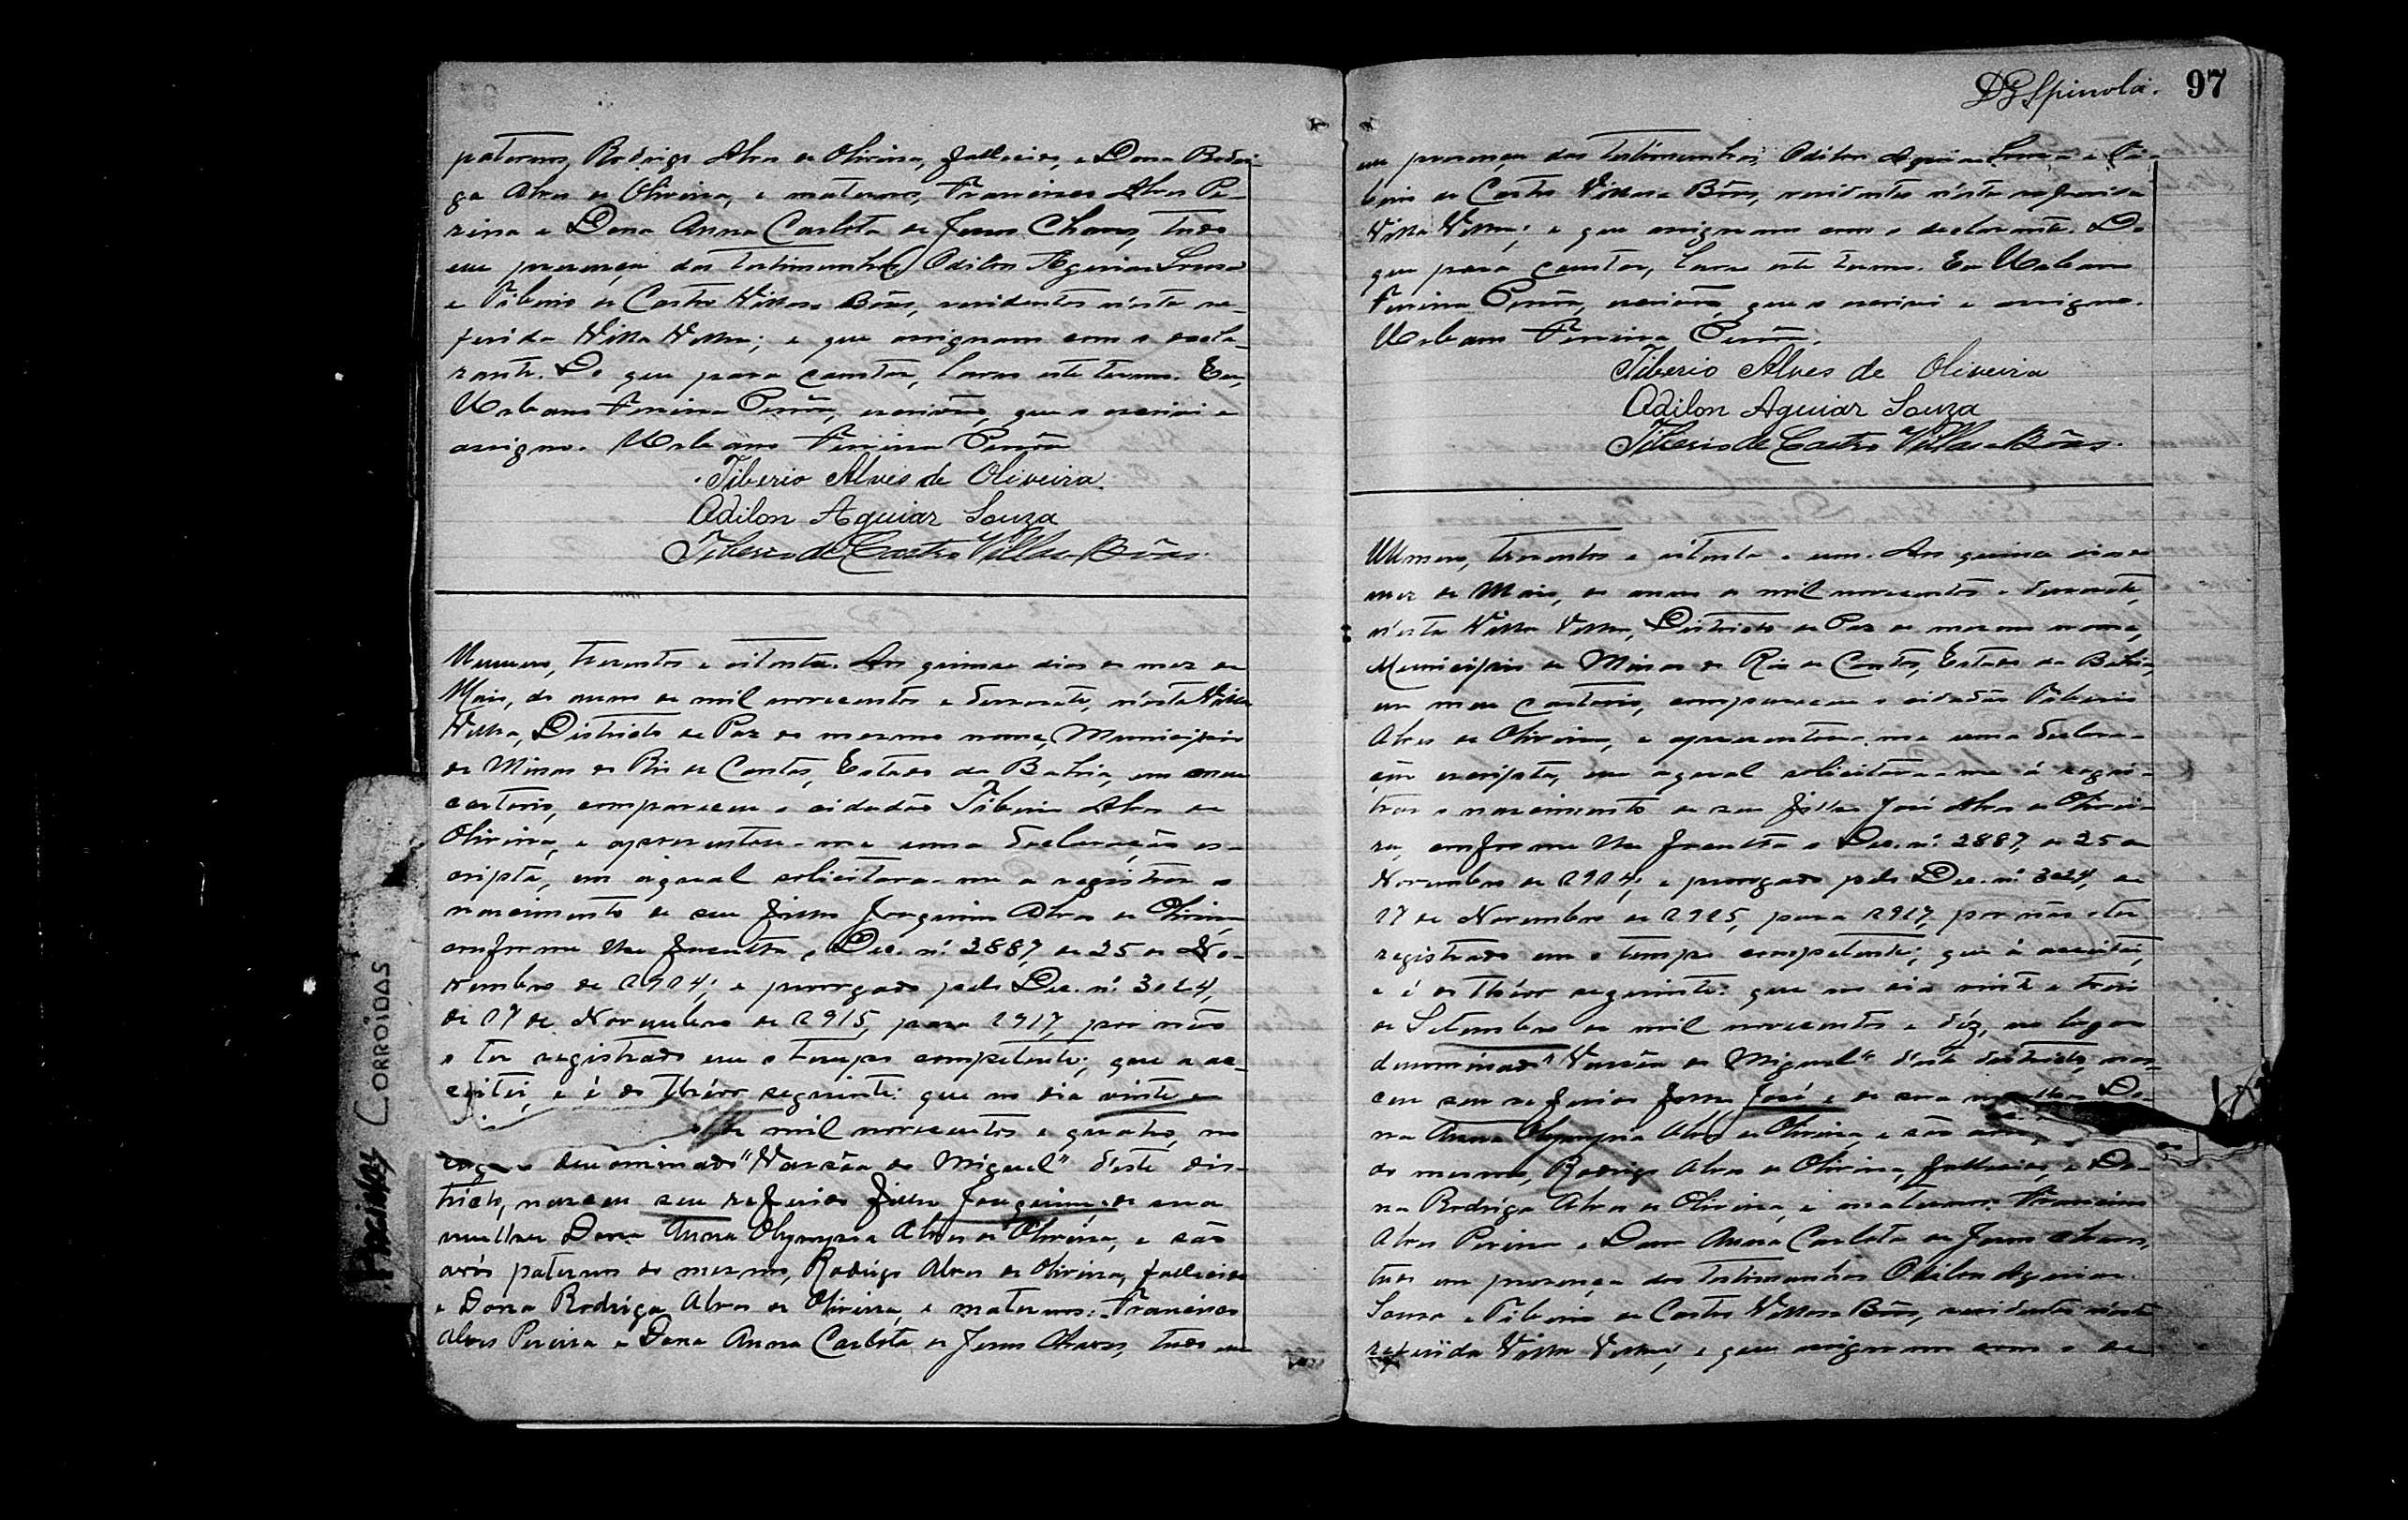 paternos, Rodrigo Alves de Oliveira, fallecido, e Dona Rodri-
ga Alves de Oliveira, e maternos, Francisco Alves Pe-
reira e Dona Anna Carlota de Jesus Chaves, tudo
em presença das testimunhas Odilon Aguiar Souza
e Tiberio de Castro Villas-Bôas, residentes n'esta re-
ferida Villa Velha; e que assignam com o decla-
rante. Do que para constar, lavro este termo. Eu,
Urbano Ferreira escrivão, que o escrivi e
assigno. Urbano Ferreira
Tiberio Alves de Oliveira
Odilon Aguiar Souza
Tiberio de Castro Villas-Bôas.
Numero, trezentos e oitenta. Aos quinze dias do mez de
Maio, do anno de mil novecentos e dezesete, n'esta Villa
Velha, Districto de Paz do mesmo nome, Municipio
de Minas do Rio de Contas, Estado da Bahia, em meu
cartorio, compareceu o cidadão Tiberio Alves de
Oliveira, e apresentou-me uma declaração es-
cripta, em a qual solicitara-me a registrar o
nascimento de seu filho Joaquim Alves de Oliveira
conforme lhe faculta o Dec. nº. 2887, de 25 de No-
vembro de 1914; e prorogado pelo Dec. nº. 3024,
de 17 de Novembro de 1915, para 1917, por não
o ter registrado em o tempo competente; que a ac-
ceitei, e é do theôr seguinte: que no dia vinte e
de mil novecentos e quatro, no
lugar denominado "Varzêa do Miguel" d'este dis-
tricto, nasceu seu referido filho Joaquim e de sua
mulher Dona Anna Olympia Alves de Oliveira, e são
avós paternos do mesmo, Rodrigo Alves de Oliveira, fallecido
e Dona Rodriga Alves de Oliveira, e maternos: Francisco
Alves Pereira e Dona Anna Carlota de Jesus Chaves, tudo em
Paginas Corroídas
D G Spinola. 97
em presença das testimunhas, Odilon Aguiar Souza e Ti-
berio de Castro Villas-Bôas, residentes n'esta referida
Villa Velha; e que assignam com o declarante. Do
que para constar, lavro este termo. Eu Urbano
Ferreira escrivão, que o escrivi e assigno.
Urbano Ferreira
Tiberio Alves de Oliveira
Odilon Aguiar Souza
Tiberio de Castro Villas-Bôas.
Numero, trezentos e oitenta e um. Aos quinze dias do
mez de Maio, do anno de mil novecentos e dezesete,
n'esta Villa Velha, Districto de Paz do mesmo nome,
Municipio de Minas do Rio de Contas, Estado da Bahia,
em meu cartorio, compareceu o cidadão Tiberio
Alves de Oliveira, e apresentou-me uma declara-
ção escripta, em a qual solicitara-me á regis-
trar o nascimento de seu filho José Alves de Olivei-
ra, conforme lhe faculta o Dec. nº. 2887, de 25 de
Novembro de 1914; e prorogado pelo Dec. nº. 3024, de
17 de Novembro de 1915, para 1917, por não o ter
registrado em o tempo competente; que á acceitei,
e é do theôr seguinte: que no dia vinte e trez
de Setembro de mil novecentos e déz, no lugar
denominado "Varzêa do Miguel" d'este districto, nas-
ceu seu referido filho José e de sua mulher Do-
na Anna Olympia Alves de Oliveira, e são avós
do mesmo, Rodrigo Alves de Oliveira, fallecido, e Do-
na Rodriga Alves de Oliveira, e maternos: Francisco
Alves Pereira e Dona Anna Carlota de Jesus Chaves,
tudo em presença das testimunhas Odilon Aguiar
Souza e Tiberio de Castro Villas-Bôas, residentes n'esta
referida Villa Velha; e que assignam com o de